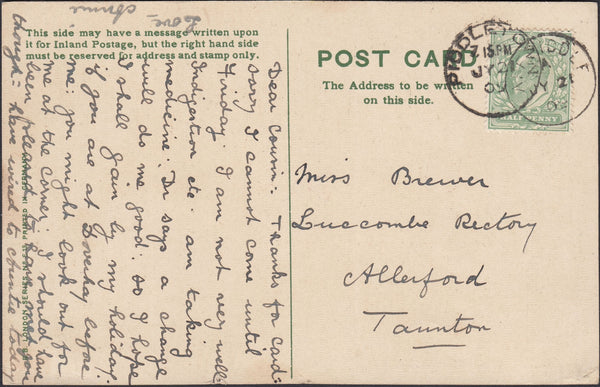 This side may have a message written upon
it for Inland Postage, but the right hand side
must be reserved for address and stamp only.
POST CARD
The Address to be written
on this side.
HALFPENNY
Miss Brewer
Luccombe Rectory
Allerford
Taunton
Dear Cousin: Thanks for card:
sorry I cannot come until
Friday. I am not very well:
Indigestion etc. am taking
medicine: Dr says a change
will do me good: so I hope
I shall gain by my holiday:
if you are at Doverhay before
me: you might look out for
me at the corner: I should have
been pleased to have met you
though: have wired to Auntie today
love